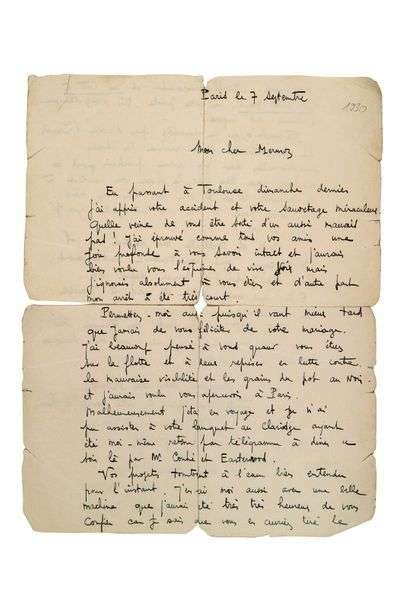 Paris le 7 Septembre
1930
Mon cher Mermoz
En passant à Toulouse dimanche dernier
j'ai appris votre accident et votre sauvetage miraculeux.
Quelle veine de vous être tiré d'un aussi mauvais
pas ! J'ai éprouvé comme tous vos amis une
joie profonde à vous savoir intact et j'aurais
bien voulu vous l'exprimer de vive voix mais
j'ignorais absolument où vous étiez et d'autre part
mon arrêt a été très court.
Permettez-moi aussi puisqu'il vaut mieux tard
que jamais de vous féliciter de votre mariage.
J'ai beaucoup pensé à vous quand vous étiez
sur la flotte et à deux reprises en lutte contre
la mauvaise visibilité et les grains du pot au Noir
et j'aurais voulu vous apercevoir à Paris.
Malheureusement j'étais en voyage et je n'ai
pu assister à votre banquet au Claridge ayant
été moi-même retenu par télégramme à dîner
là par Mr et Eastwood
Vos projets tombent à l'eau bien entendu
pour l'instant. moi aussi avec une belle
machine que j'aurais été très très heureux de vous
car je sais que vous en auriez tiré le